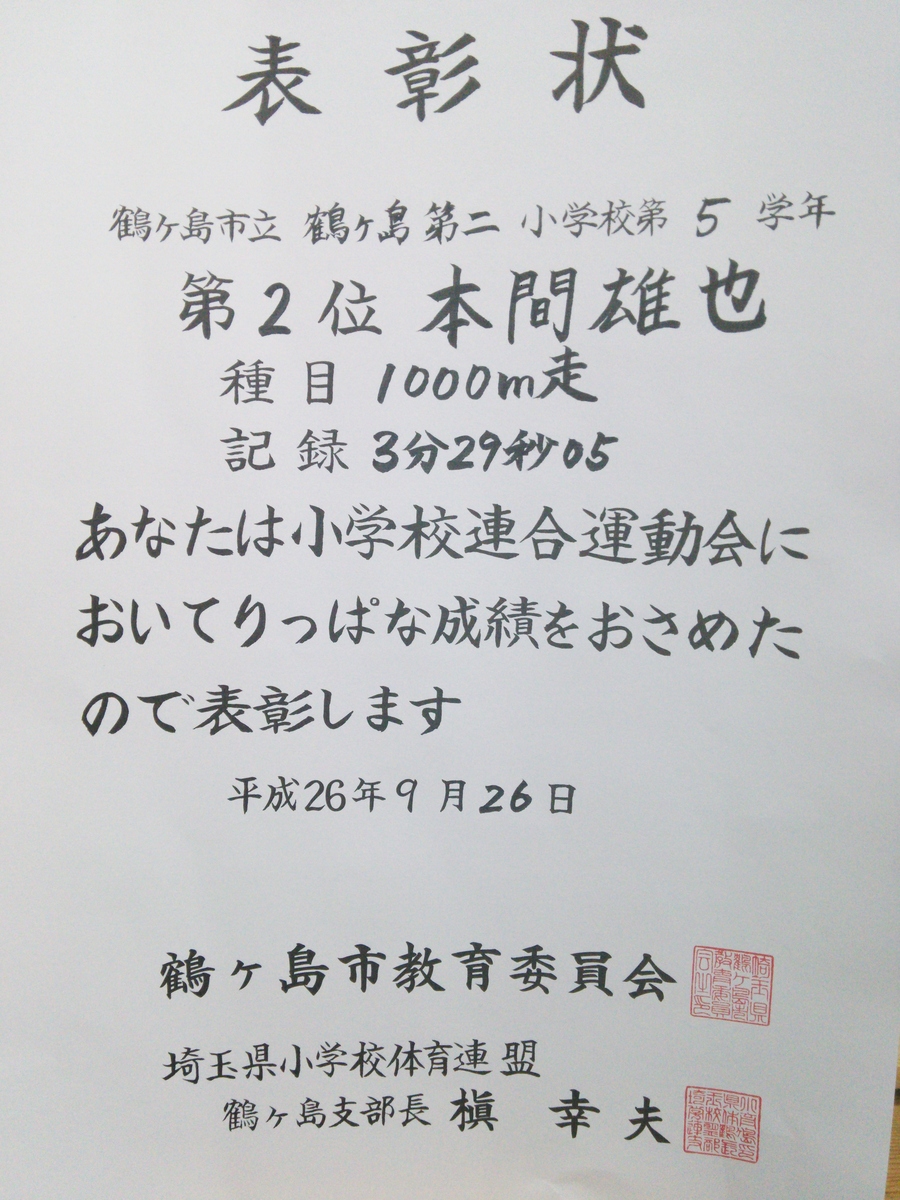 表彰状
鶴ヶ島市立 鶴ヶ島第二 小学校第 5 学年
第2位 本間雄也
種目 1000m走
記録 3分29秒05
あなたは小学校連合運動会に
おいてりっぱな成績をおさめた
ので表彰します
平成26年9月26日
鶴ヶ島市教育委員会
埼玉県小学校体育連盟
鶴ヶ島支部長 槇 幸夫